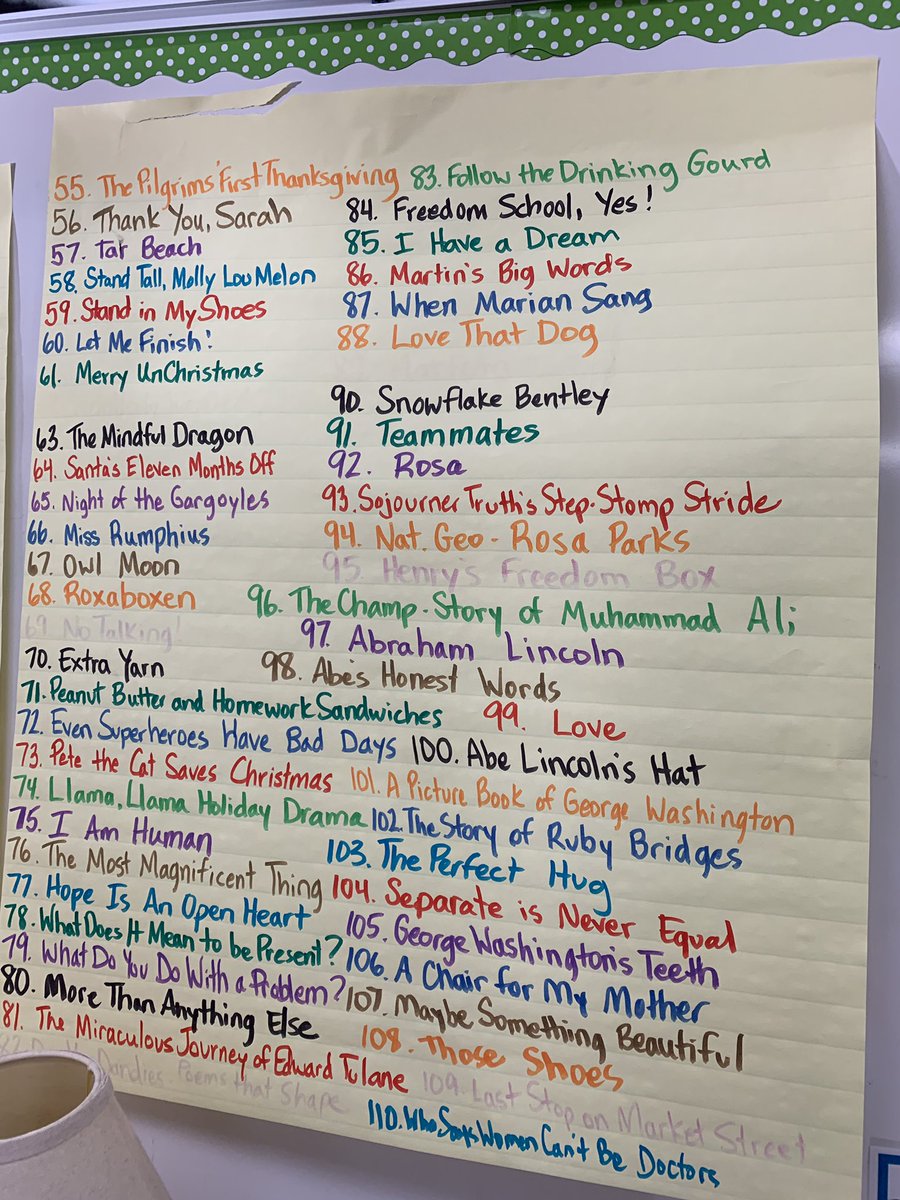 55. The Pilgrims' First Thanksgiving
56. Thank You, Sarah
57. Tar Beach
58. Stand Tall, Molly Lou Melon
59. Stand in My Shoes
60. Let Me Finish!
61. Merry UnChristmas
63. The Mindful Dragon
64. Santa's Eleven Months Off
65. Night of the Gargoyles
66. Miss Rumphius
67. Owl Moon
68. Roxaboxen
69. No Talking!
70. Extra Yarn
71. Peanut Butter and Homework Sandwiches
72. Even Superheroes Have Bad Days
73. Pete the Cat Saves Christmas
74. Llama, Llama Holiday Drama
75. I Am Human
76. The Most Magnificent Thing
77. Hope Is An Open Heart
78. What Does It Mean to be Present?
79. What Do You Do With a Problem?
80. More Than Anything Else
81. The Miraculous Journey of Edward Tulane
82. Dandies: Poems that Shape
83. Follow the Drinking Gourd
84. Freedom School, Yes!
85. I Have a Dream
86. Martin's Big Words
87. When Marian Sang
88. Love That Dog
90. Snowflake Bentley
91. Teammates
92. Rosa
93. Sojourner Truth's Step-Stomp Stride
94. Nat. Geo - Rosa Parks
95. Henry's Freedom Box
96. The Champ - Story of Muhammad Ali;
97. Abraham Lincoln
98. Abe's Honest Words
99. Love
100. Abe Lincoln's Hat
101. A Picture Book of George Washington
102. The Story of Ruby Bridges
103. The Perfect Hug
104. Separate is Never Equal
105. George Washington's Teeth
106. A Chair for My Mother
107. Maybe Something Beautiful
108. Those Shoes
109. Last Stop on Market Street
110. Who Says Women Can't Be Doctors